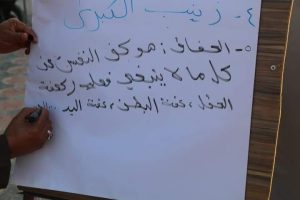 ٤- زينب الكبرى
٥- العفاف: هو كف النفس عن
كل ما لا ينبغي فعله كعفة
القول، عفة البطن، عفة اليد